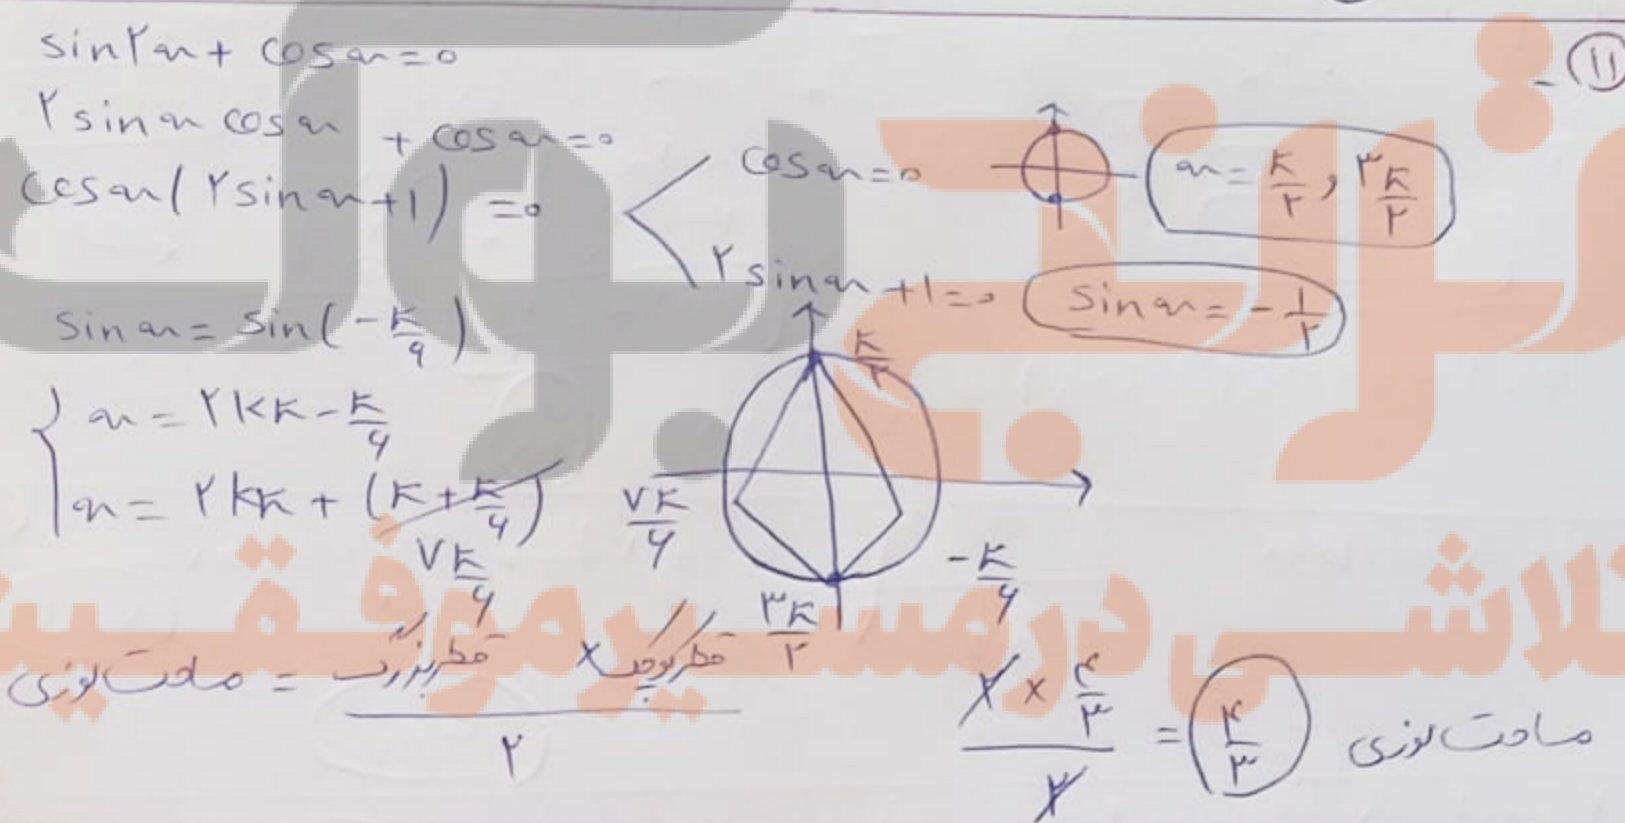 ۱۱
sin۲x + cosx = ۰
۲sinx cosx + cosx = ۰
cosx(۲sinx+۱) = ۰
cosx = ۰ x = π/۲ , ۳π/۲
۲sinx+۱ = ۰ sinx = -۱/۲
sinx = sin(-π/۶)
x = ۲kπ - π/۶
x = ۲kπ + (π + π/۶)
۷π/۶
π/۲
۷π/۶
-π/۶
۳π/۲
مساحت لوزی = قطر بزرگ × قطر کوچک / ۲
۲ × ۴/۳ / ۲ = ۴/۳ مساحت لوزی
تلاشی در مسیر موفقیت